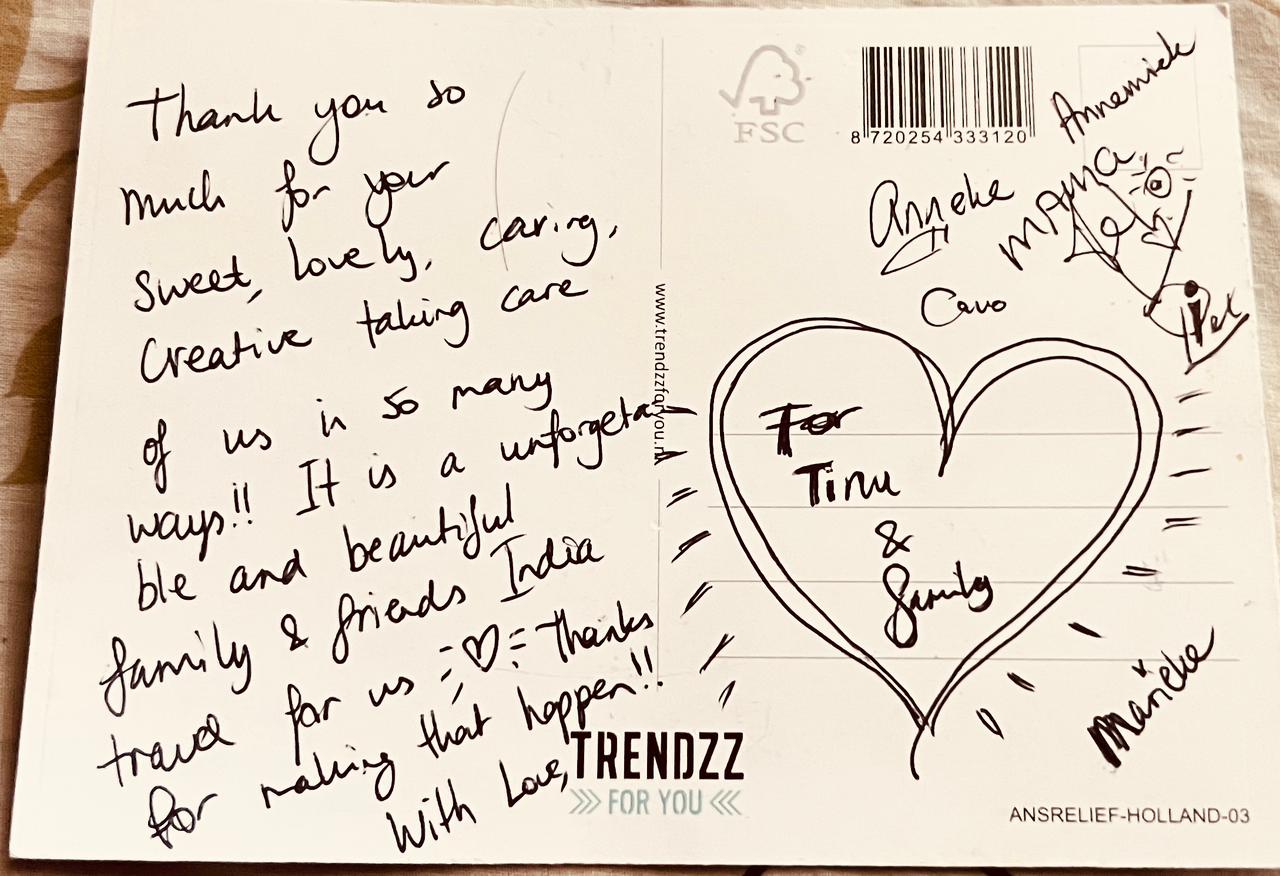 Thank you so
much for your
sweet, lovely, caring,
Creative taking care
of us in so many
ways!! It is a unforgeta
ble and beautiful
family & friends India
travel for us Thanks
for making that happen!!
With Love,
FSC
8 720254 333120
Annemiek
Anneke
MAMA
www.trendzzforyou.nl
For
Tinu
&
family
Marieke
TRENDZZ
FOR YOU
ANSRELIEF-HOLLAND-03